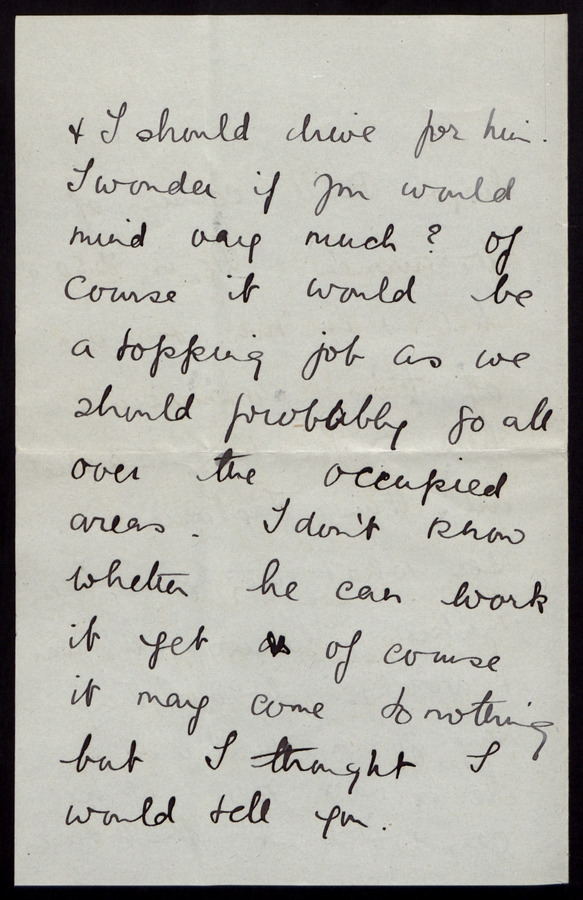 & I should drive for him.
I wonder if you would
mind very much? Of
course it would be
a topping job as we
should probbably go all
over the occupied
areas. I don't know
whether he can work
it yet & of course
it may come to nothing
but I thought I
would tell you.